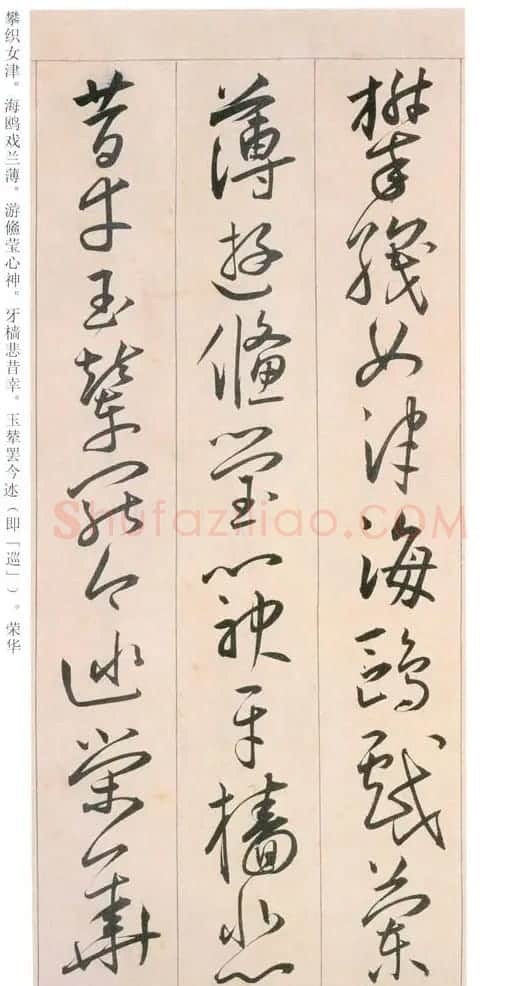 攀織女津海鷗戲蘭
薄遊儵瑩心神牙檣悲
昔幸玉輦罷今榮華
攀织女津。海鸥戏兰薄。游儵莹心神。牙樯悲昔幸。玉辇罢今（即「巡」）。荣华
Shufaziliao.COM